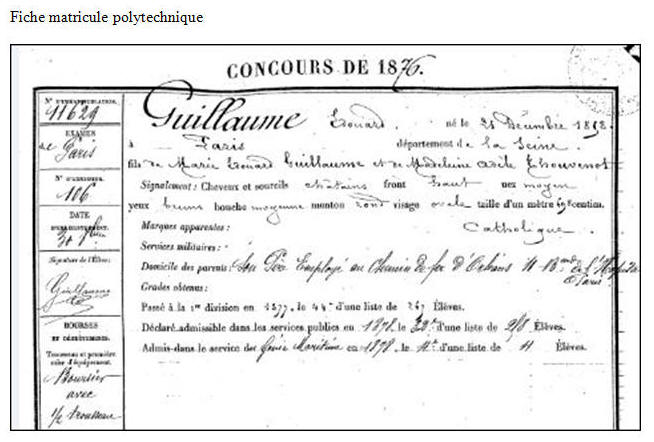 Fiche matricule polytechnique
CONCOURS DE 1876.
N° D'IMMATRICULATION.
11629
EXAMEN
de Paris
106
DATE
Signature de l'Élève:
Guillaume
BOURSES
ET DÉGRÈVEMENTS.
Trousseau et première
mise d'équipement.
Boursier
avec
1/2 trousseau
Guillaume Edouard né le 21 Décembre 18
à Paris département de la Seine
fils de Marie Edouard Guillaume et de Madeleine Adèle Thouvenot
Signalement: Cheveux et sourcils châtains front haut nez moyen
yeux bruns bouche moyenne menton rond visage ovale taille d'un mètre 698 centim.
Marques apparentes: Catholique.
Services militaires:
Domicile des parents: Son Père Employé au Chemin de fer d'Orléans 11 Bard de l'Hôpital
Paris
Grades obtenus:
Passé à la 1re division en 1877. le 44e d'une liste de 247 Élèves.
Déclaré admissible dans les services publics en 1878. le d'une liste de Élèves.
Admis dans le service du Génie Maritime en 1878. le 4e d'une liste de 4 Élèves.